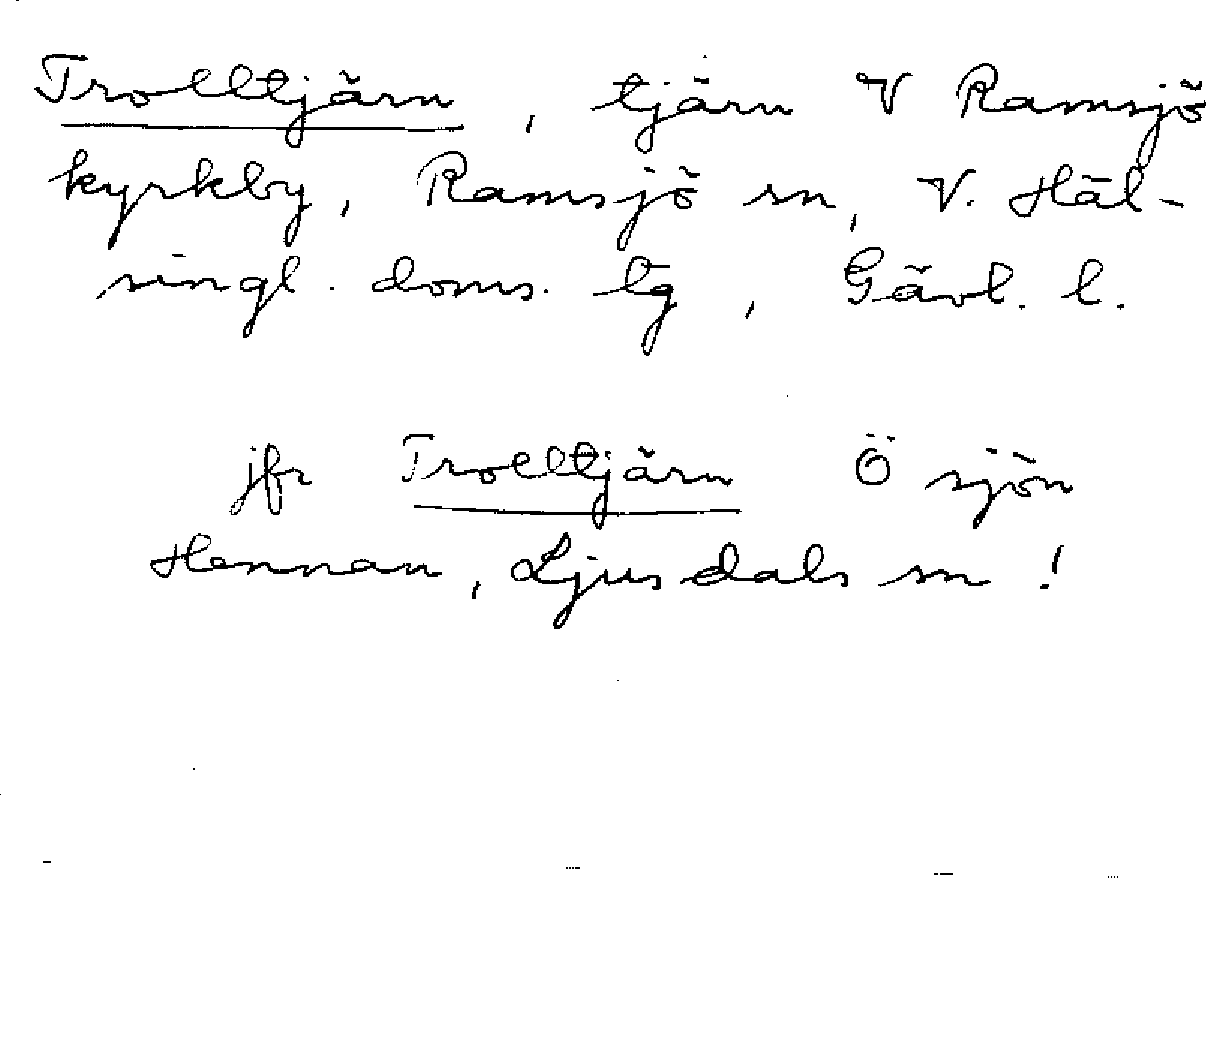 Trolltjärn, tjärn V Ramsjö
kyrkby, Ramsjö sn, V. Häl-
singl. doms. lg, Gävl. l.
jfr Trolltjärn Ö sjön
Hennan, Ljusdals sn!